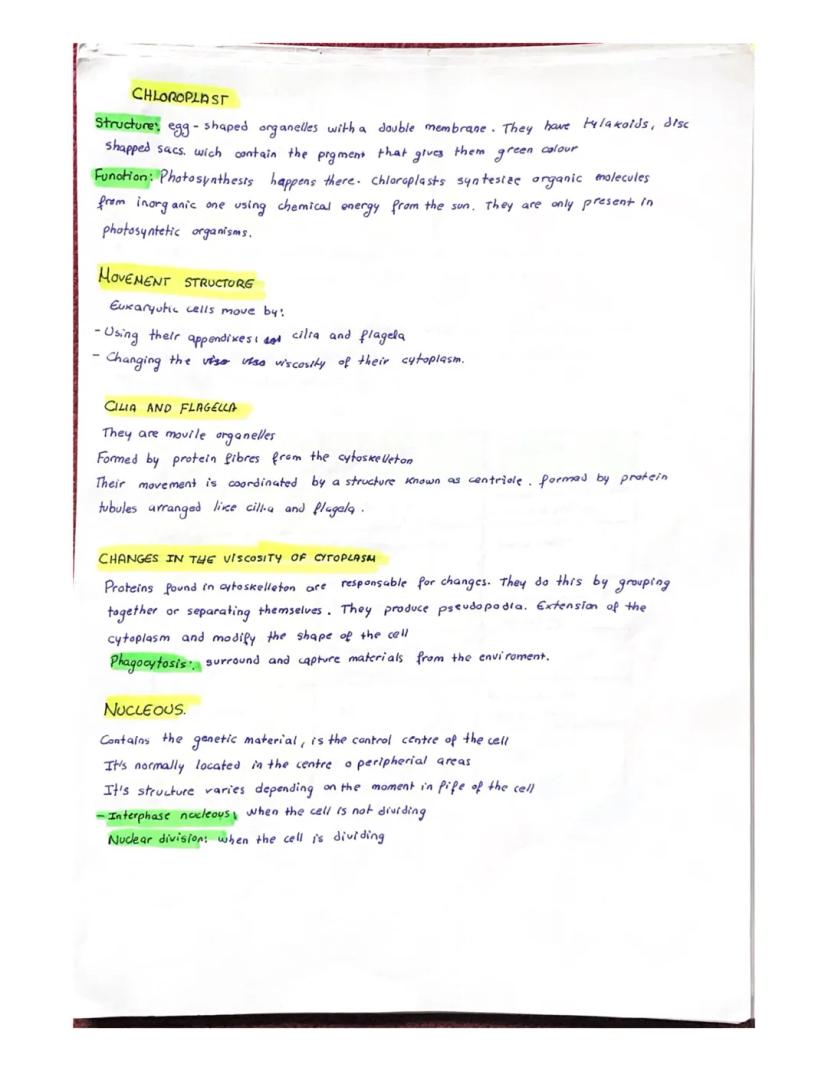 CHLOROPLAST
Structure: egg-shaped organelles with a double membrane. They have tylakoids, disc
shapped sacs. wich contain the pigment that gives them green colour
Function: Photosynthesis happens there. Chloroplasts syntesize organic molecules
from inorganic one using chemical energy from the sun. They are only present in
photosyntetic organisms.
MOVEMENT STRUCTURE
Eukaryotic cells move by:
- Using their appendixes: cilia and flagela
- Changing the viscosity of their cytoplasm.
CILIA AND FLAGELLA
They are movile organelles
Formed by protein fibres from the cytoskelleton
Their movement is coordinated by a structure known as centriole. formed by protein
tubules arranged like cillia and flagela.
CHANGES IN THE VISCOSITY OF CYTOPLASM
Proteins found in cytoskelleton are responsable for changes. They do this by grouping
together or separating themselves. They produce pseudopodia. Extension of the
cytoplasm and modify the shape of the cell
Phagocytosis: surround and capture materials from the enviroment.
NUCLEOUS.
Contains the genetic material, is the control centre of the cell
It's normally located in the centre o peripherial areas
It's structure varies depending on the moment in life of the cell
- Interphase nucleous: when the cell is not dividing
Nuclear division: when the cell is dividing